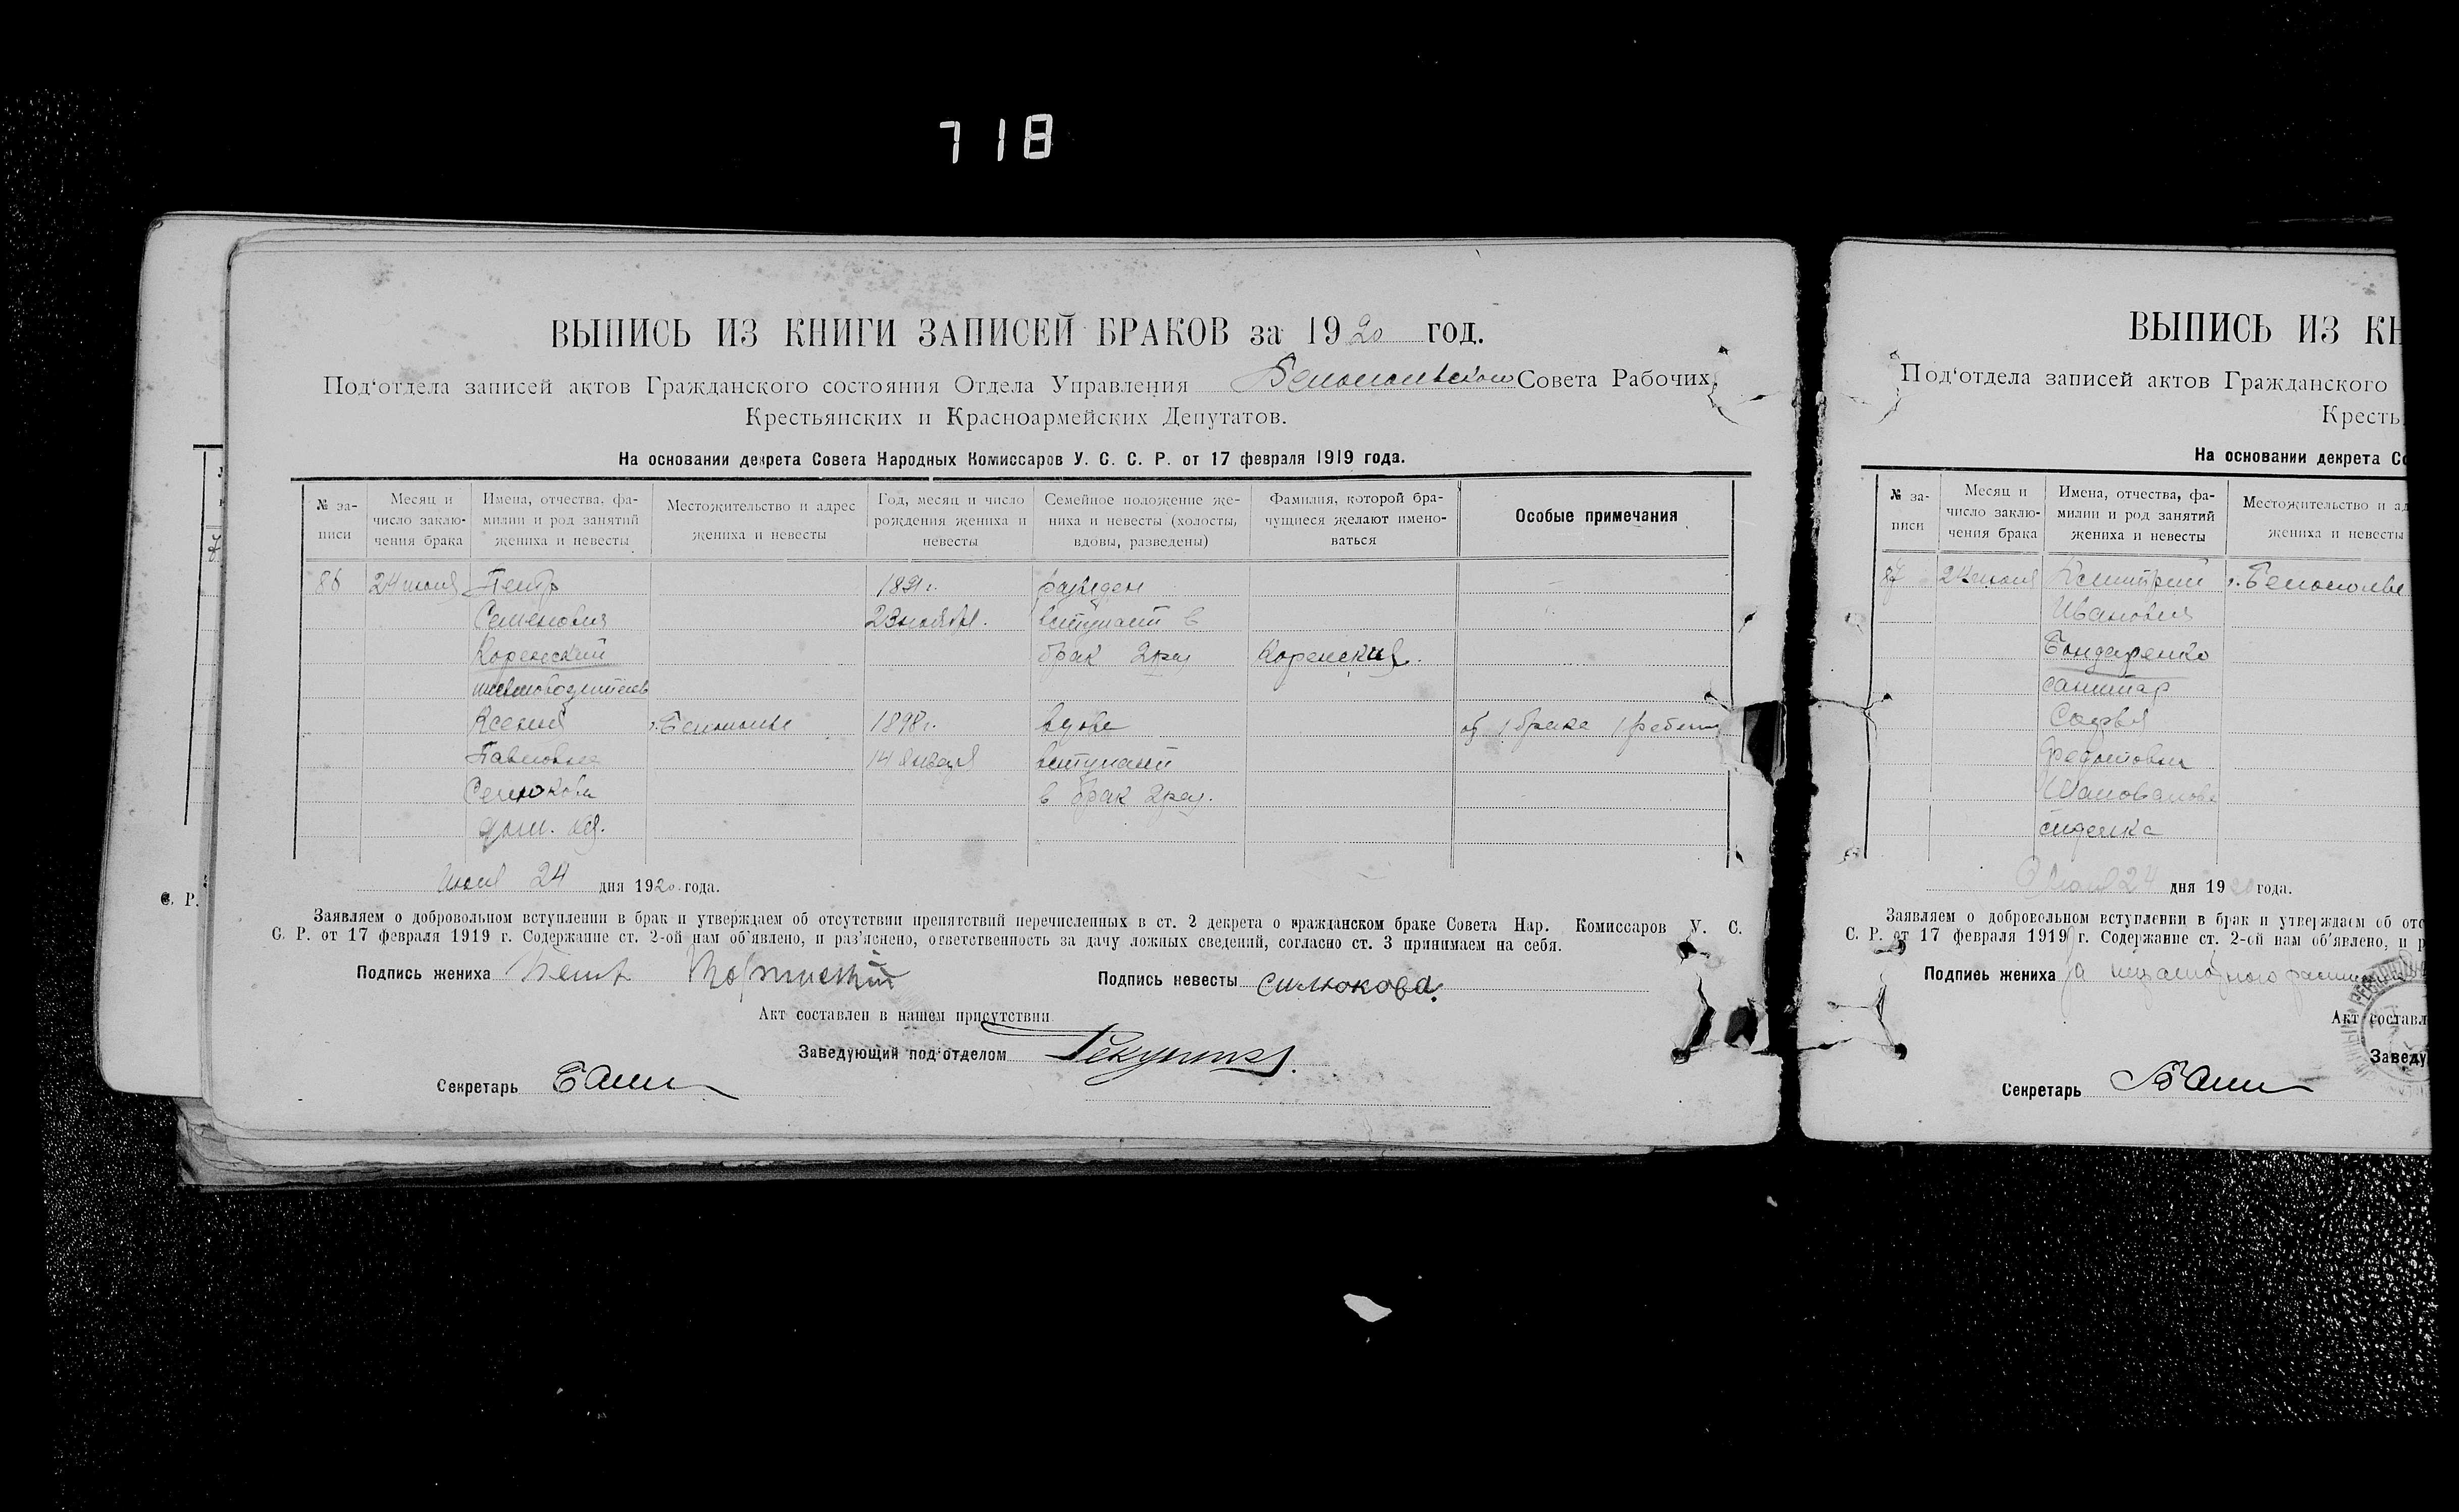 718
ВЫПИСЬ ИЗ КНИГИ ЗАПИСЕЙ БРАКОВ за 1920 год.
Под‘отдела записей актов Гражданского состояния Отдела Управления Белопольского Совета Рабочих,
Крестьянских и Красноармейских Депутатов.
На основании декрета Совета Народных Комиссаров У. С. С. Р. от 17 февраля 1919 года.
№ за-
писи
Месяц и
число заклю-
чения брака
Имена, отчества, фа-
милии и род занятий
жениха и невесты
Местожительство и адрес
жениха и невесты
Год, месяц и число
рождения жениха и
невесты
Семейное положение же-
ниха и невесты (холосты,
вдовы, разведены)
Фамилия, которой бра-
чущиеся желают имено-
ваться
Особые примечания
86 24 июля Петр 1891г. разведен
Семенович 23 ноября. вступает в
Коренский брак 2 раз Коренский.
Ксения г. Белополье 1898г. вдова от 1 брака 1 ребен
Павловна 14 января вступает
Семокова в брак 2 раз.
дом. хоз.
Июля 24 дня 1920 года.
Заявляем о добровольном вступлении в брак и утверждаем об отсутствии препятствий перечисленных в ст. 2 декрета о гражданском браке Совета Нар. Комиссаров У. С.
С. Р. от 17 февраля 1919 г. Содержание ст. 2-ой нам об‘явлено, и раз‘яснено, ответственность за дачу ложных сведений, согласно ст. 3 принимаем на себя.
Подпись жениха Петр Подпись невесты Силюкова.
Акт составлен в нашем присутствии
Заведующий под‘отделом
Секретарь
С. Р.
ВЫПИСЬ ИЗ КН
Под‘отдела записей актов Гражданского
Кресть
На основании декрета Со
№ за-
писи
Месяц и
число заклю-
чения брака
Имена, отчества, фа-
милии и род занятий
жениха и невесты
Местожительство и ад
жениха и невесты
87 24 июля Димитрий г. Белополье
Иванович
Бондаренко
санитар
Софья
Федотовна
сиделка
Июля 24 дня 1920 года.
Заявляем о добровольном вступлении в брак и утверждаем об отс
С. Р. от 17 февраля 1919 г. Содержание ст. 2-ой нам об‘явлено, и р
Подпись жениха
Акт составл
Заведу
Секретарь